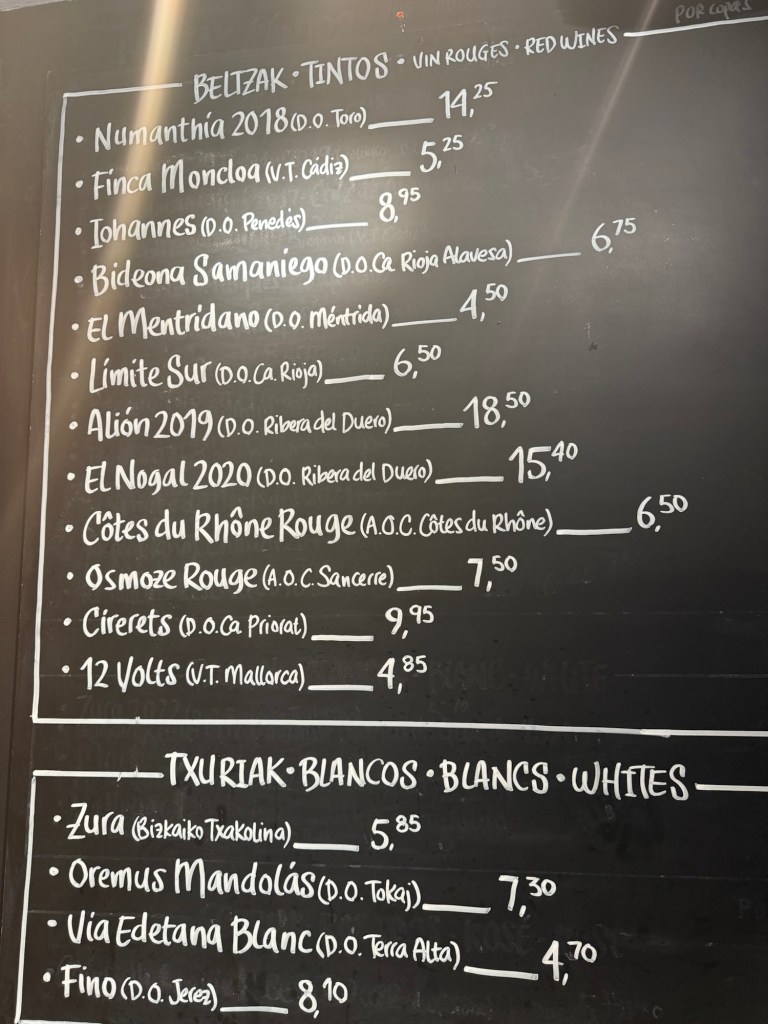 POR copas
BELTZAK · TINTOS · VIN ROUGES · RED WINES
· Numanthía 2018 (D.O. Toro) 14,25
· Finca Moncloa (V.T. Cádiz) 5,25
· Iohannes (D.O. Penedès) 8,95
· Bideona Samaniego (D.O.Ca. Rioja Alavesa) 6,75
· El Mentridano (D.O. Méntrida) 4,50
· Límite Sur (D.O.Ca. Rioja) 6,50
· Alión 2019 (D.O. Ribera del Duero) 18,50
· El Nogal 2020 (D.O. Ribera del Duero) 15,40
· Côtes du Rhône Rouge (A.O.C. Côtes du Rhône) 6,50
· Osmoze Rouge (A.O.C. Sancerre) 7,50
· Cirerets (D.O.Ca Priorat) 9,95
· 12 Volts (V.T. Mallorca) 4,85
TXURIAK · BLANCOS · BLANCS · WHITES
· Zura (Bizkaiko Txakolina) 5,85
· Oremus Mandolás (D.O. Tokaj) 7,30
· Via Edetana Blanc (D.O. Terra Alta) 4,70
· Fino (D.O. Jerez) 8,10